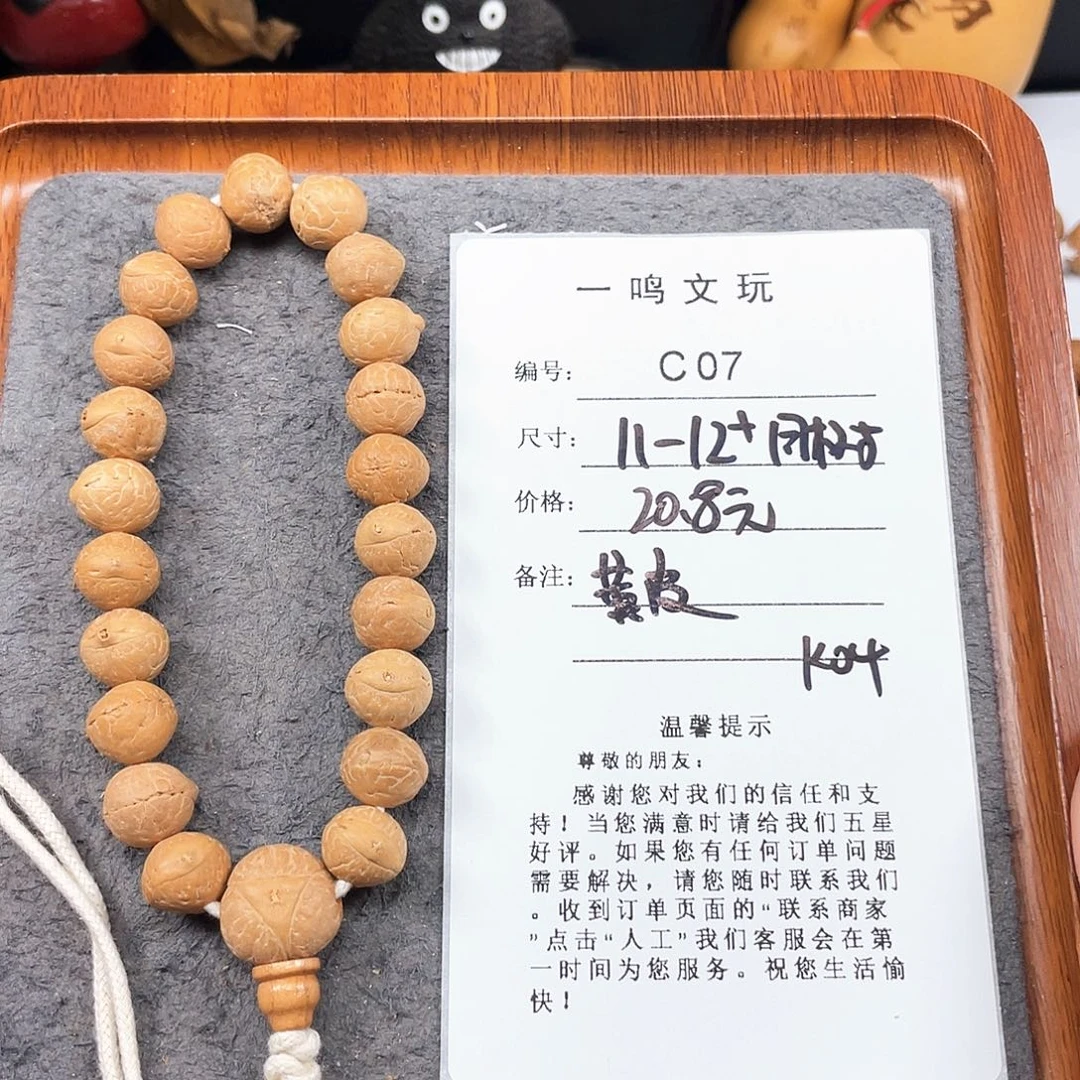 一鸣文玩
编号: C07
尺寸: 11-12+
价格: 20.8元
备注: 黄皮
K04
温馨提示
尊敬的朋友:
感谢您对我们的信任和支
持!当您满意时请给我们五星
好评。如果您有任何订单问题
需要解决,请您随时联系我们
。收到订单页面的“联系商家
”点击“人工”我们客服会在第
一时间为您服务。祝您生活愉
快!